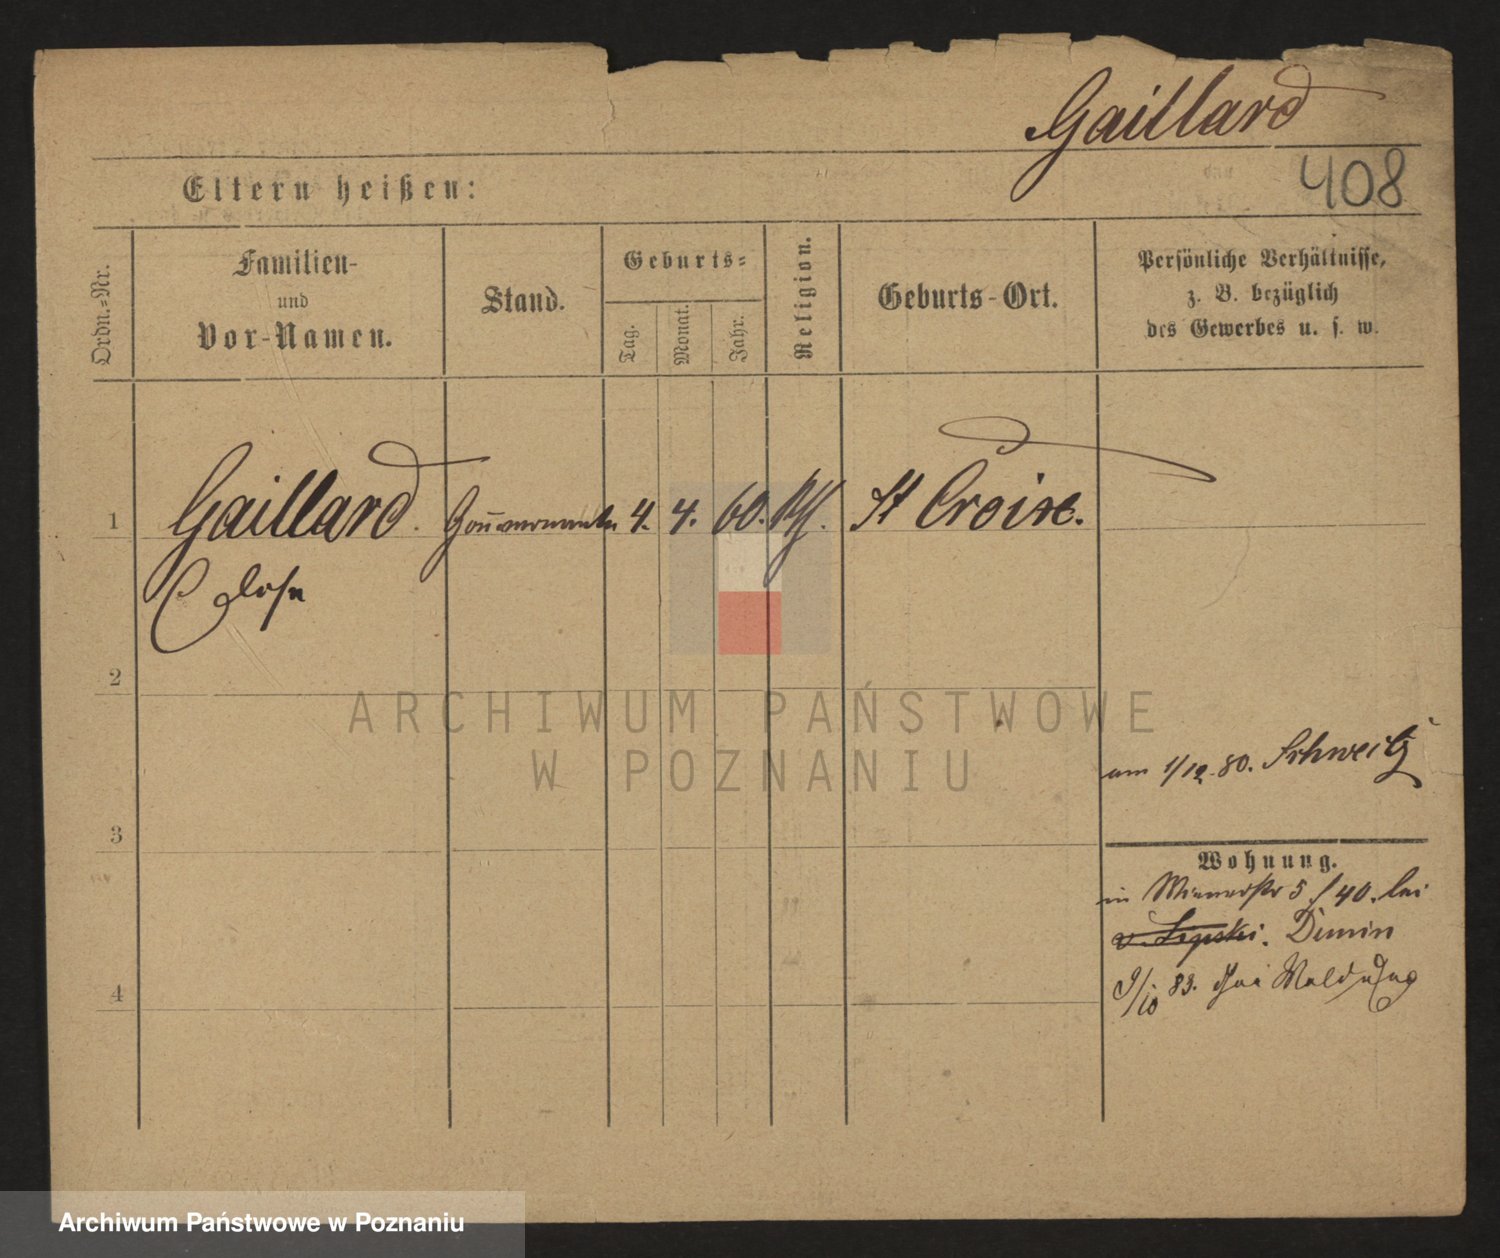 Gaillard
408
Eltern heißen:
Ordn.-Nr.
Familien-
und
Vor-Namen.
Stand.
Geburts-
Tag.
Monat.
Jahr.
Religion.
Geburts-Ort.
Persönliche Verhältnisse,
z. B. bezüglich
des Gewerbes u. s. w.
1
Gaillard
Gouvernante
4.
4.
60.
St Croixe.
2
ARCHIWUM PAŃSTWOWE
W POZNANIU
am 1/12. 80. Schweitz
3
Wohnung.
in Wienerstr 5 / 40. bei
v. Lipski.
4
9/10 83.
Archiwum Państwowe w Poznaniu